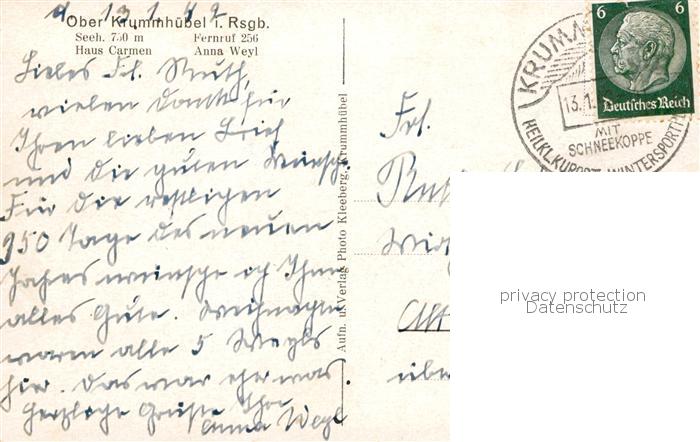 d. 13.1.42
Ober Krummhübel i. Rsgb.
Seeh. 750 m Fernruf 256
Haus Carmen Anna Weyl
Liebes Frl. Ruth,
vielen Dank für
Ihren lieben Brief
und die guten Wünsche
Für die restlichen
350 Tage des neuen
Jahres wünsche ich Ihnen
alles Gute. Weihnachten
waren alle 5 Weyls
hier. Das war ehr was.
Herzliche Grüße Ihre
Anna Weyl
Aufn. u. Verlag Photo Kleeberg, Krummhübel
Frl.
Alt
über
6 6
Deutsches Reich
KRUMM
13.1.
MIT
SCHNEEKOPPE
HEILKL.KURORT WINTERSPORTPL
privacy protection
Datenschutz